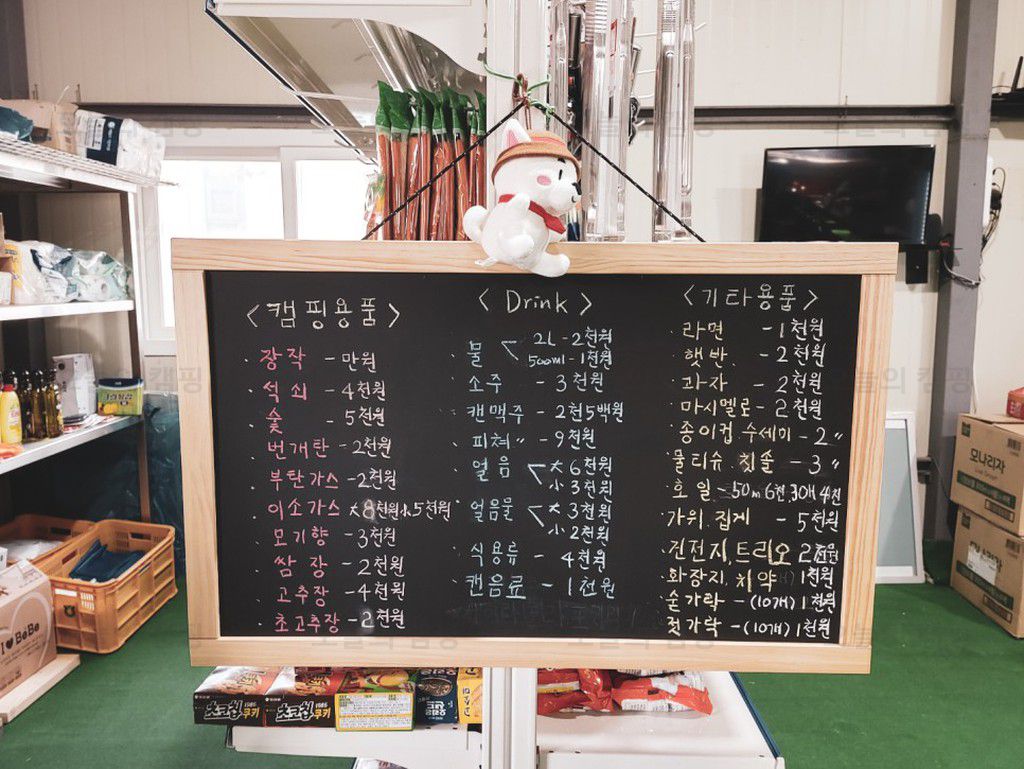 <캠핑용품>
· 장작 - 만원
· 석쇠 - 4천원
· 숯 - 5천원
· 번개탄 - 2천원
· 부탄가스 - 2천원
· 이소가스 大8천원小5천원
· 모기향 - 3천원
· 쌈장 - 2천원
· 고추장 - 4천원
· 초고추장 - 2천원
<Drink>
· 물 < 2L - 2천원
500ml - 1천원
· 소주 - 3천원
· 캔맥주 - 2천5백원
· 피쳐 〃 - 9천원
· 얼음 < 大 6천원
小 3천원
· 얼음물 < 大 3천원
小 2천원
· 식용류 - 4천원
· 캔음료 - 1천원
<기타용품>
· 라면 - 1천원
· 햇반. - 2천원
· 과자 - 2천원
· 마시멜로 - 2천원
· 종이컵 수세미 - 2 〃
· 물티슈. 칫솔 - 3 〃
· 호일 - 50m 6천 30개 4천
· 가위. 집게 - 5천원
· 건전지, 트리오 2천원
· 화장지, 치약 1천원
· 숟가락 - (10개) 1천원
· 젓가락 - (10개) 1천원
모나리자
I ♥ BeBe
초코칩쿠키
초코칩쿠키
오늘의 캠핑